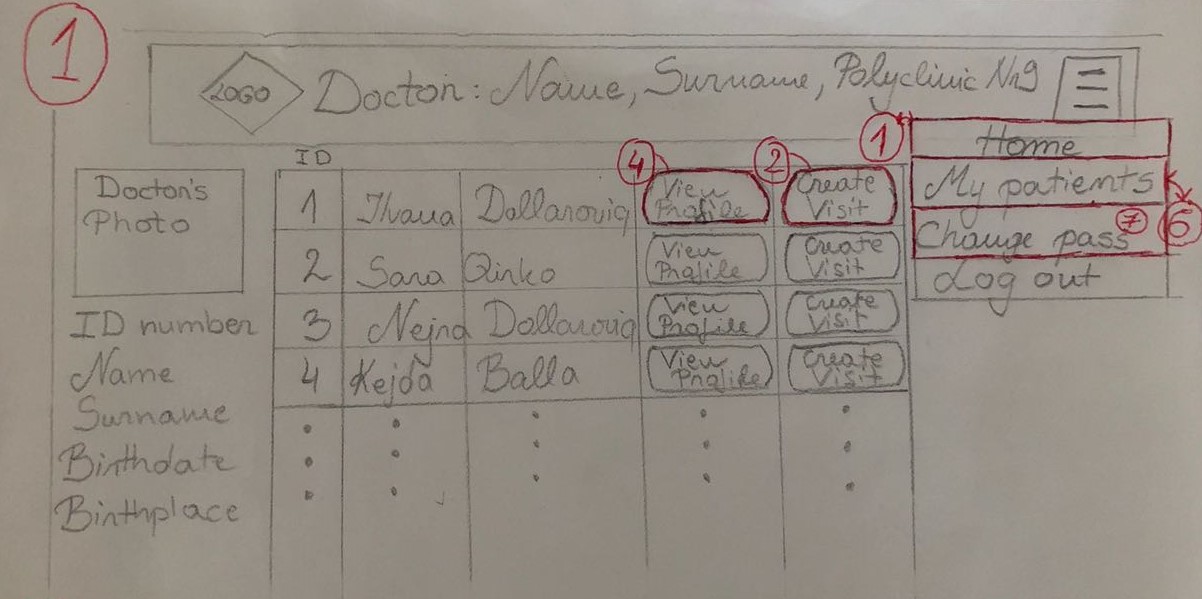 1
LOGO Doctor: Name, Surname, Polyclinic Nr9
1
Home
My patients
6
Change pass 7
Log out
Doctor's
Photo
ID number
Name
Surname
Birthdate
Birthplace
ID
4 2
1 Dollaroviq View Profile Create Visit
2 Sara Qirko View Profile Create Visit
3 Nejra Dollaroviq View Profile Create Visit
4 Kejda Balla View Profile Create Visit